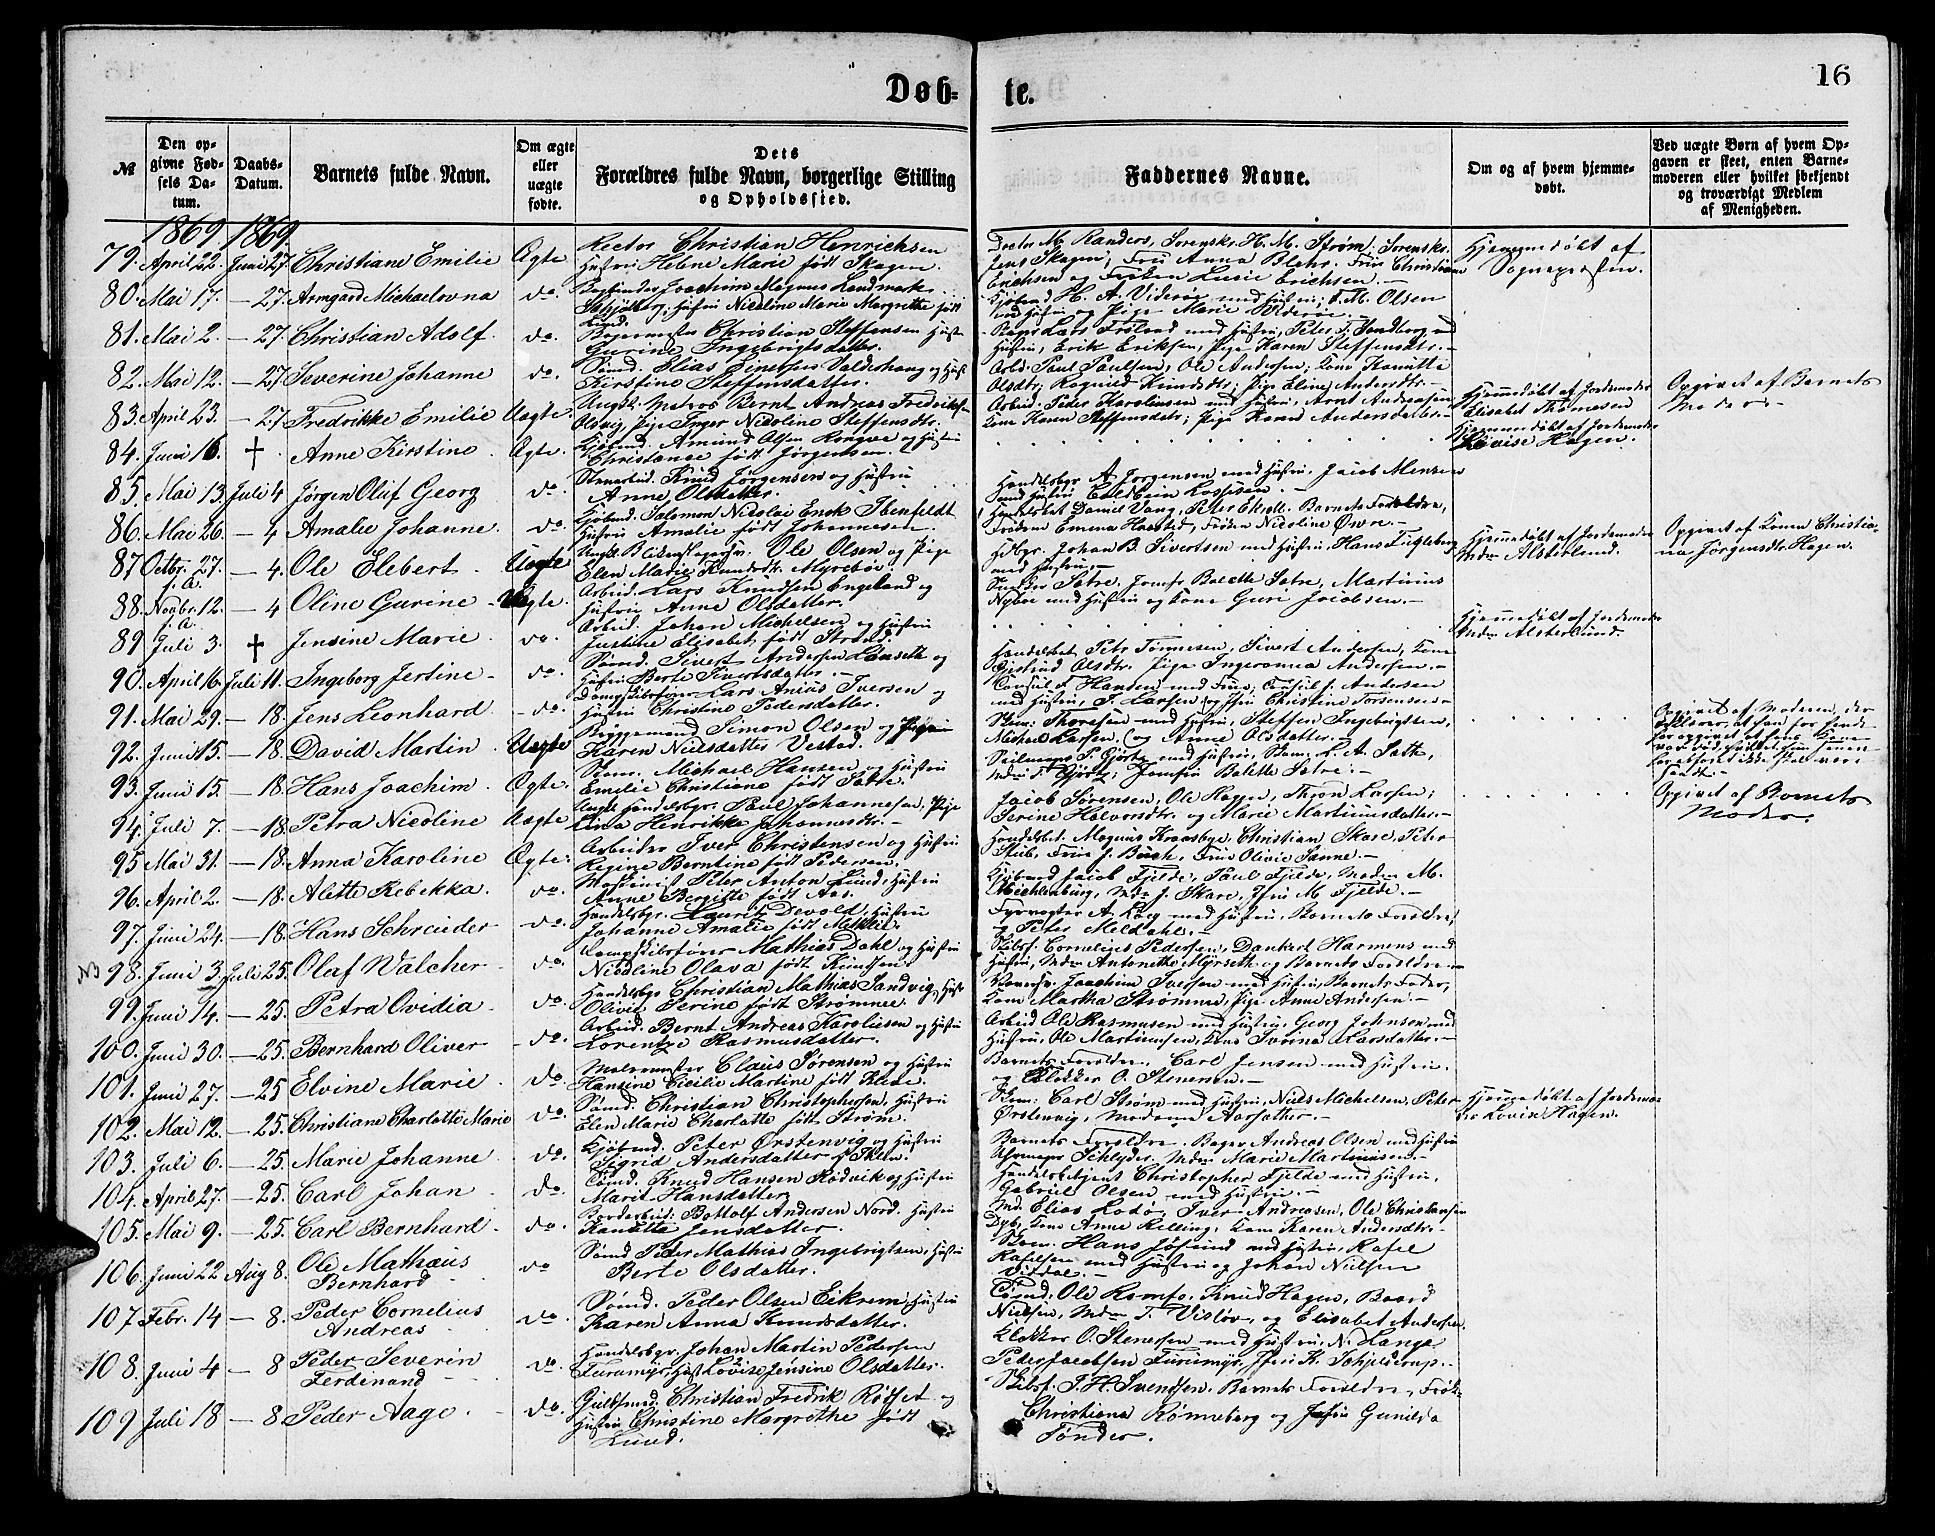 16
Døb- te.
№
Den opgivne Fødsels Datum.
Daabs-Datum.
Barnets fulde Navn.
Om ægte eller uægte fødte.
Dets Forældres fulde Navn, borgerlige Stilling og Opholdssted.
Faddernes Navne.
Om og af hvem hjemmedøbt.
Ved uægte Børn af hvem Opgaven er skeet, enten Barnemoderen eller hvilket bekjendt og troværdigt Medlem af Menigheden.
1869 1869
79. April 22. Juni 27. Christiane Emilie Ægte Rector Christian Henrichsen
Hustru Helene Marie født Skagen.
Doctor M. Randers, Sorenskr. H. M. Strøm, Sorenskr.
Jens Skagen, Frue Anna Blehr, Frue Christiane
Erichsen og Frøken Lucie Erichsen.
Hjemmedøbt af
Sognepræsten.
80. Mai 17. — 27. Armgard Michaelovna do. Bogbinder Joachim Magnus Landmark
Hustru Nicoline Marie Margrethe født
Lund.
Kjøbmd H. A. Viderøe med Hustru, F. M. Olsen
med Hustru og Pige Marie Viderøe.
81. Mai 2. — 27. Christian Adolf. do. Bygmester Christian Steffensen Hustru
Gurine Ingebrigtsdatter.
Lars Frøland med Hustru, Peter T. Sandberg med
Hustru, Erik Eriksen, Pige Karen Steffensdtr.
82. Mai 12. — 27. Severine Johanne do. Sømd. Elias Einersen Valderhaug og Hust.
Kirstine Steffensdatter.
Arbd. Paul Paulsen, Ole Andersen; Kone Kanutte
Olsdtr; Ragnild Knudsdtr; Pige Eline Andersdtr.
83. April 23. — 27. Fredrikke Emilie Uægte. Ungk. Matros Bernt Andreas Fredriksen
Olsvig, Pige Inger Nicoline Steffensdtr.
Arbeid. Peder Karolinsen med Hustru, Arnt Andreasen
Kone Karen Steffensdatr; Pige Karen Andersdatter.
Hjemmedøbt af Jordemoder
Elisabet Thomasen
Opgivet af Barnets
Moder.
84. Juni 16. † Anne Kirstine Ægte. Kjøbmd. Amund Olsen Kongsve og Hustru
Christanse født Jørgensen.
Hjemmedøbt af Jordemoder
Lovise Hagen.
85. Mai 13. Juli 4 Jørgen Oluf Georg do. Knud Jørgensen og Hustru
Anne Olsdatter.
Handelsbgr A. Jørgensen med Hustru, Jacob Monsen
med Hustru
86. Mai 26. — 4 Amalie Johanne. do. Kjøbmd. Salomon Nicolai Enok Ibenfeldt
Hustru Amalie født Johannesen.
Handelsbet. Daniel Vaag, Peter Eksell. Barnets Forældre,
Frøken Emma Hansted, Frøken Nicoline Owre.
87 Octbr. 27. f. A. — 4. Ole Elebert. Uægte Ungk. Blikenslagersv. Ole Olsen og Pige
Elen Marie Knudsdtr. Myrebøe.
Hdbgr. Johan B. Sivertsen med Hustru, Hans
med Hustru.
Hjemmedøbt af Jordemoder
Mdm Alsterlund.
Opgivet af Konen Christiana
Jørgensdtr. Hagen.
88. Novbr. 12. f. A. — 4 Oline Gurine Ægte. Arbeid. Lars Knudsen Engeland og
Hustru Anne Olsdatter.
Snedker Sætre, Jomfr Bolette Sætre, Martinus
Nybøe med Hustru og Kone Guri Jacobsen.
89 Juli 3. † Jensene Marie do. Arbeid. Johan Michelsen og Hustru
Justine Elisabet født Strand.
Hjemmedøbt af Jordemoder
Mdm Alsterlund.
90. April 16. Juli 11. Ingeborg Jertine do. Sømd. Sivert Andersen Lønseth og
Hustru Berte Sivertsdatter.
Handelsbet. Petr Tønnesen, Sivert Andersen, Kone
Gjertrud Olsdtr. Pige Ingeranna Andersen.
91. Mai 29. — 18. Jens Leonhard do. Dampskibsfører Lars Anius Iversen og
Hustru Christine Pedersdatter.
Consul F. Hansen med Frue, Consul J. Andersen
med Hustru, T. Larsen og Jfru Christine Torsensen.
92. Juni 15. — 18. David Martin Uægte Bryggemand Simon Olsen og Pigen
Karen Nielsdatter Vestad.
Skom. Thoresen med Hustru, Steffen Ingebrigtsen,
Michael Larsen og Anne Olsdatter.
Opgivet af Moderen, der
93. Juni 15. — 18. Hans Joachim Ægte. Skom. Michael Hansen og Hustru
Emilie Christiane født Sætre.
Seilmager T. Gjørtz med Hustru, Skom. L. A. Sæth,
Mdm T. Gjørtz, Jomfru Bolette Sætre.
94. Juli 7. — 18. Petra Nicoline Uægte Ungk. Handelsbgr. Paul Johannesen, Pige
Lina Henrikke Johannesdtr.
Jacob Sørensen, Ole Hagen, Thron Larsen;
Serine Halvorsdtr. og Marie Martinusdatter.
Opgivet af Barnets
Moder.
95 Mai 31. — 18. Anna Karoline Ægte. Arbeider Iver Christensen og Hustru
Regine Berntine født Pedersen.
Handelsbet. Magnus Kraasbye, Christian Skare, Peter
Stub, Frue J. Buch, Frue Olivie Sanne.
96. April 2. — 18. Alette Rebekka. do. Maskinist Peter Anton Lund, Hustru
Anne Bergitte født Aas.
Kjøbmd Jacob Fjelde, Paul Fjelde, Madm M.
Mechlenburg, Mdm J. Skare, Jfru M. Fjelde.
97. Juni 24. — 18. Hans Schreuder do. Handelsbgr. Laurits Devold, Hustru
Johanne Amalie født
Fyrvogter A. Koeg med Hustru, Barnets Forældre,
og Peter Meldahl.
98. Juni 3. Juli 25. Olaf Walcher do. Dampskibsfører Mathias Dahl og Hustru
Nicoline Olava født Knudsen.
Skibsf. Cornelius Pedersen, Dankert Harmens med
Hustru, Mdm Antonette Myrseth og Barnets Forældre.
99. Juni 14. — 25. Petra Ovidia do. Handelsbgr Christian Mathias Sandvig, Hust.
Olivie Serine født Strømme.
Joachim Iversen med Hustru, Barnets Fader,
Kone Martha Strømme, Pige Anne Andersen.
100. Juni 30. — 25. Bernhard Oliver do. Arbeid. Bernt Andreas Karolusen og Hustru
Lorentze Rasmusdatter.
Arbeid Ole Rasmusen med Hustru, Georg Johnsen med
Hustru, Ole Martinusen, Kone Ivrina Larsdatter.
101. Juni 27. — 25 Elvine Marie do. Malermester Claus Sørensen og Hustru
Hansine Cicilie Martine født Klede.
Barnets Forældre. Carl Jensen med Hustru,
og Klokker O. Stenersen.
102. Mai 12. — 25. Christiane Charlotte Marie do. Sømd. Christian Christophersen, Hustru
Elen Marie Charlotte født Strøm.
Skom. Carl Strøm med Hustru, Niels Michelsen, Peter
Ørstenvig, Madame Aarsæther.
Hjemmedøbt af Jordemoder
Lovise Hagen.
103. Juli 6. — 25. Marie Johanne do. Kjøbmd. Peter Ørstenvig og Hustru
Sigrid Andersdatter
Barnets Forældre. Bager Andreas Olsen med Hustru
Uhrmager Schlyder, Mdm Marie Martinusen.
104. April 27. — 25. Carl Johan do. Sømd. Knud Hansen Rødvik og Hustru
Marit Hansdatter
Handelsbetjent Christopher Fjelde med Hustru,
Gabriel Olsen med Hustru.
105. Mai 9. — 25. Carl Bernhard do. Bordarbeid. Bottolf Andersen Nord. Hustru
Kanutta Jensdatter.
Md. Elias Lodø, Iver Andreasen, Ole Christensen
Dyb, Kone Anne Relling, Kone Karen Andersdtr.
106. Juni 22 Aug 8. Ole Mathæus
Bernhard do Sømd Peder Mathias Ingebrigtsen, Hustru
Berte Olsdatter.
Skom. Hans Jøsund med Hustru, Rafel
Rafelsen med Hustru og Johan Nielsen
Vitdal.
107 Febr. 14 — 8. Peder Cornelius
Andreas do. Sømd. Peder Olsen Eikrem, Hustru
Karen Anna Knudsdatter.
Sømd. Ole Ramfo, Knud Hagen, Baard
Nielsen, Mdm T. Visløv, og Elisabet Andersen.
108. Juni 4 — 8 Peder Severin
Ferdinand do. Handelsbgr. Johan Martin Pedersen
Furumyr, Hust Lovise Jensine Olsdatter.
Klokker O. Stenersen med Hustru, N. Lange
Peder Jacobsen Furumyr, Jfru K. Schjelderup.
109 Juli 18 — 8 Peder Aage do. Guldsmed. Christian Fredrik Rødset og
Hustru Christine Margrethe født
Lund.
Skibsf. J. H. Svendsen, Barnets Forældre, Frøk.
Christiana Rønneberg og Jfru Gunilda
Tønder.